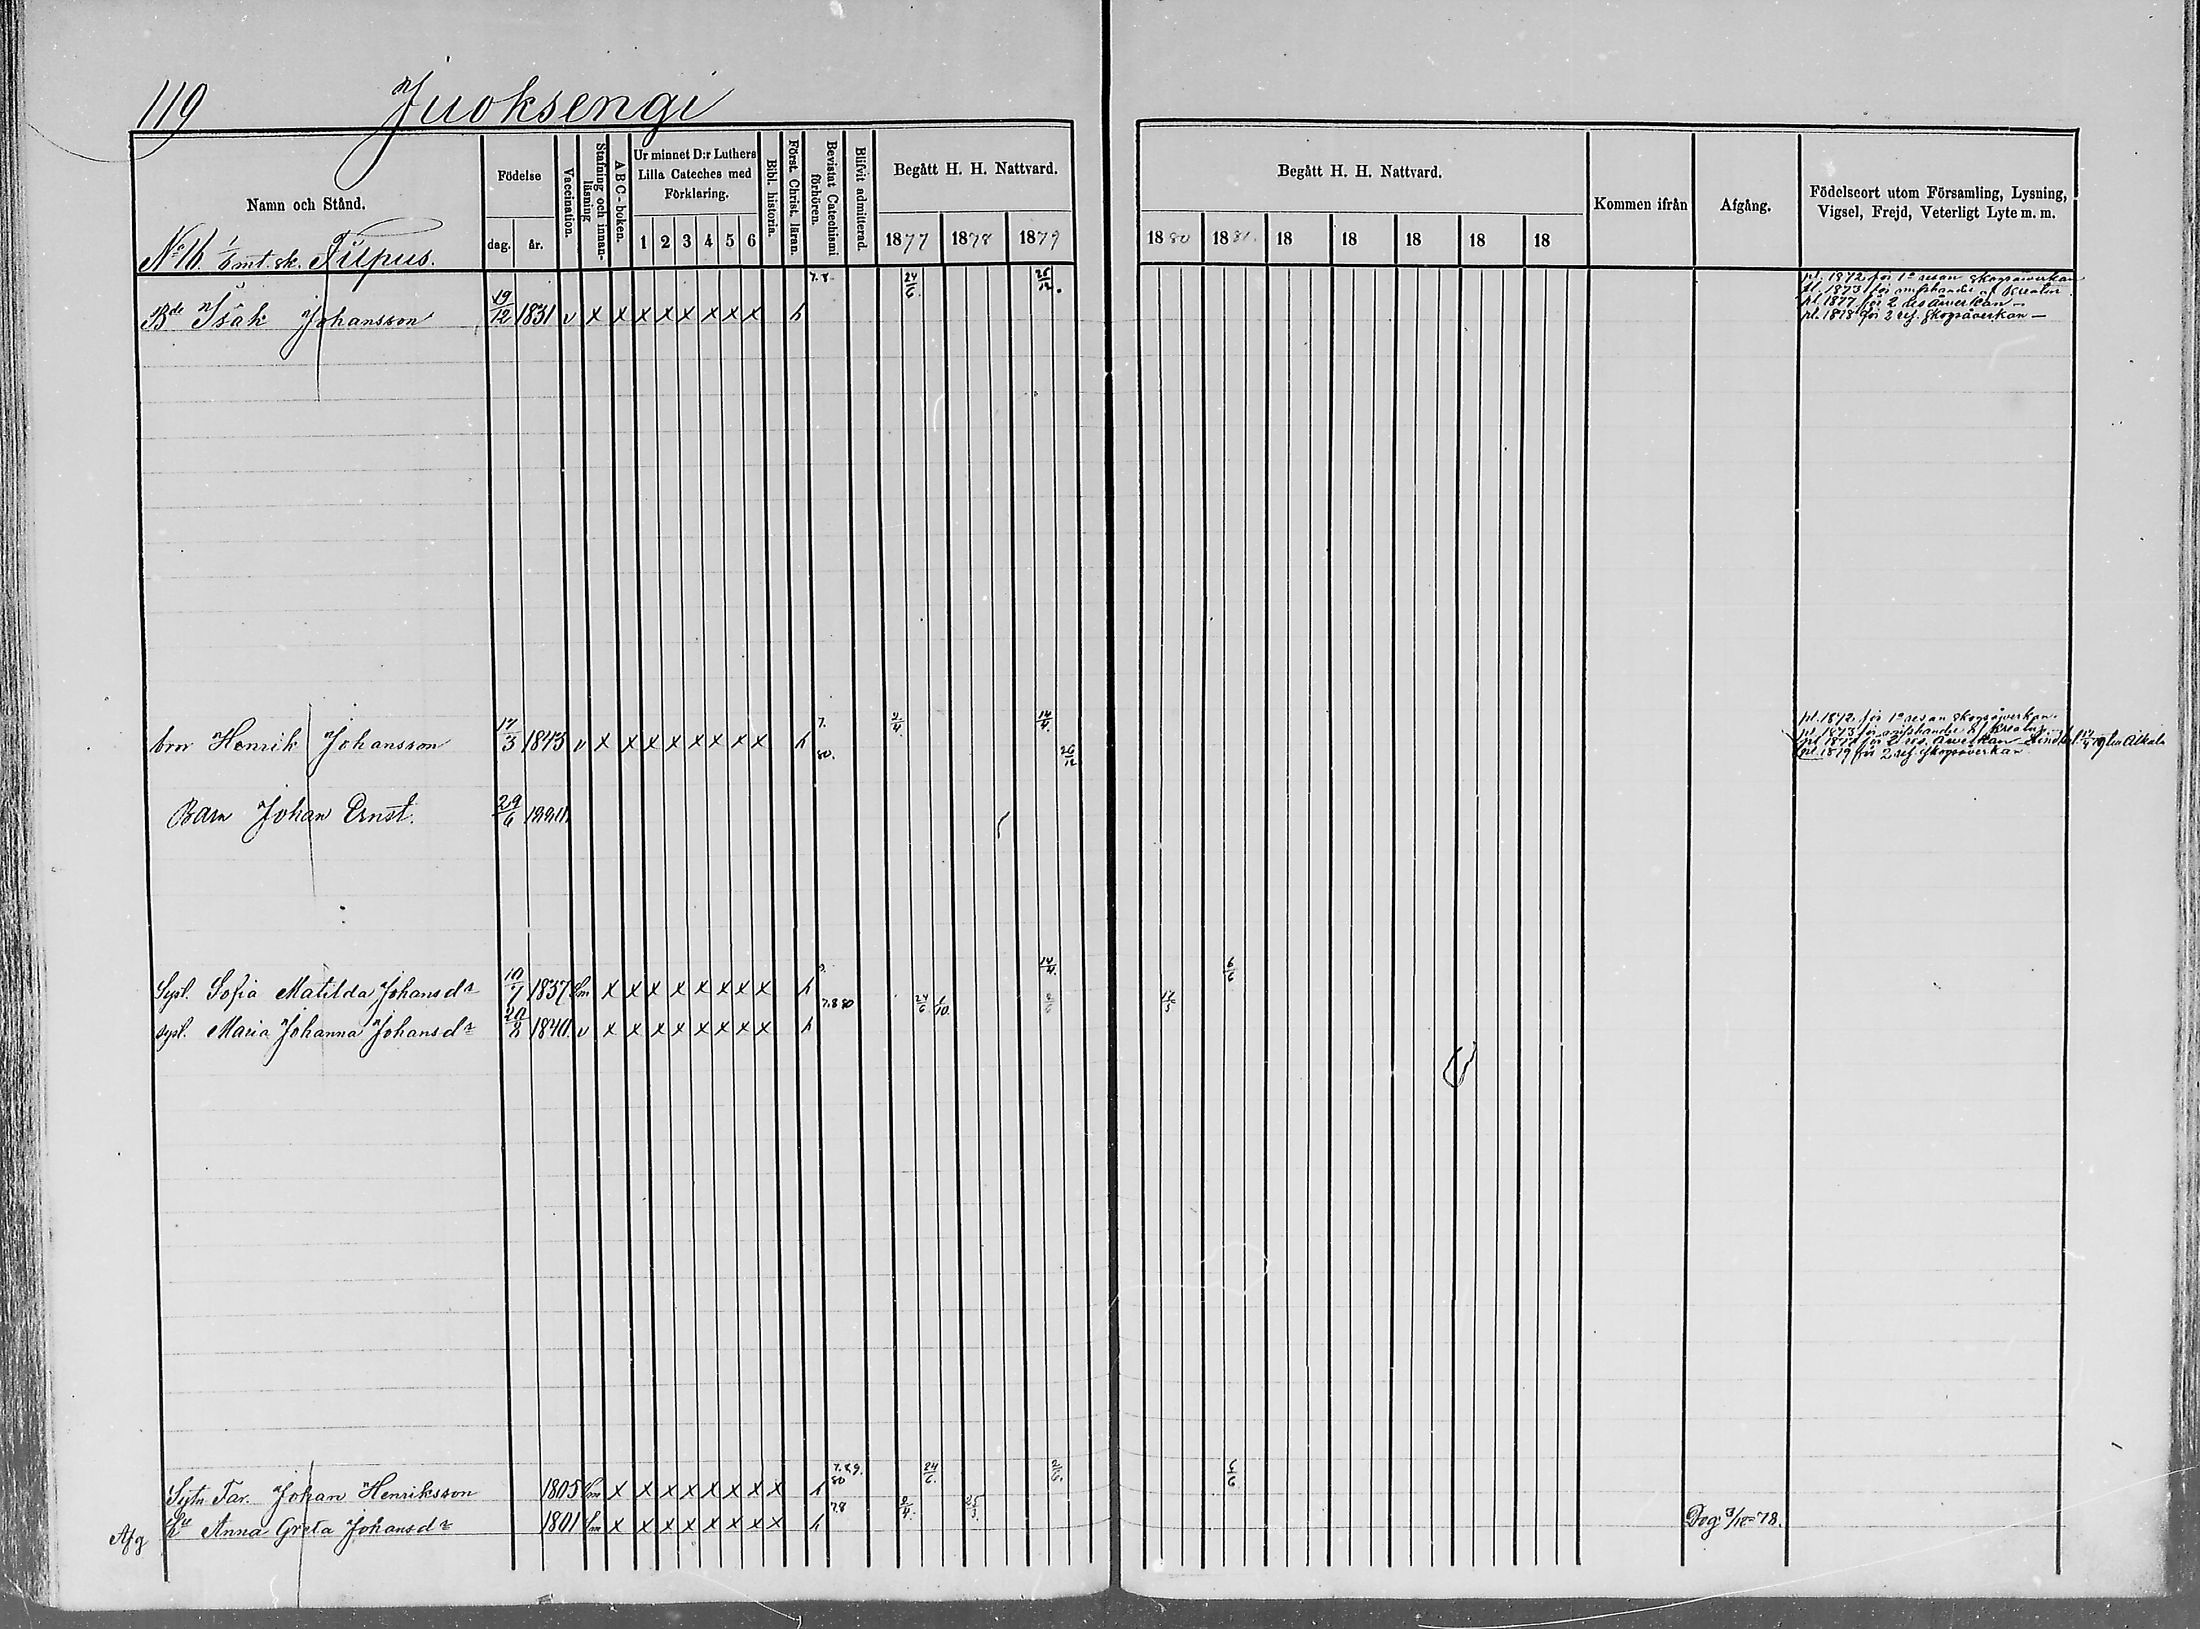 119 Juoksengi
Namn och Stånd.
Födelse
dag. år.
Vaccination.
Stafning och innanläsning
ABC-boken.
Ur minnet D:r Luthers
Lilla Cateches med
Förklaring.
1 2 3 4 5 6
Bibl. historia.
Först. Christ. läran.
Bevistat Catechismi förhören.
Blifvit admitterad.
Begått H. H. Nattvard.
1877 1878 1879
Begått H. H. Nattvard.
1880 1881. 18 18 18 18 18
Kommen ifrån
Afgång.
Födelseort utom Församling, Lysning,
Vigsel, Frejd, Veterligt Lyte m. m.
mt. sk. Filpus.
7.8. 24/6. 26/12.
pl. 1872 för 1a resan skogsåverkan
pl. 1873 för misshandel af Kreatur
pl. 1877 för 2 res åverkan —
pl. 1878 för 2 res. skogsåverkan —
Bde Isak Johansson 19/12 1831 v x x x x x x x x h
7. 2/4. 14/4.
pl. 1872 för 1a resan skogsåverkan.
pl. 1873 för misshandel af Kreatur
bror Henrik Johansson 17/3 1843 v x x x x x x x x h
80. 26/12
pl. 1879 för 2 res. skogsåverkan
Barn Johan Ernst. 29/6
14/4. 6/6
Syst. Sofia Matilda Johansdr 10/7 1837 x x x x x x x x h
7.8 80 24/6 6/10. 17/5
syst. Maria Johanna Johansdr 20/8 1840. v x x x x x x x x h
7.8.9. 80 24/6. 2/6. 6/6
Johan Henriksson 1805 x x x x x x x x h
7.8 2/4.
Afg Anna Greta Johansdr 1801 x x x x x x x x h Dog 3/10 78.